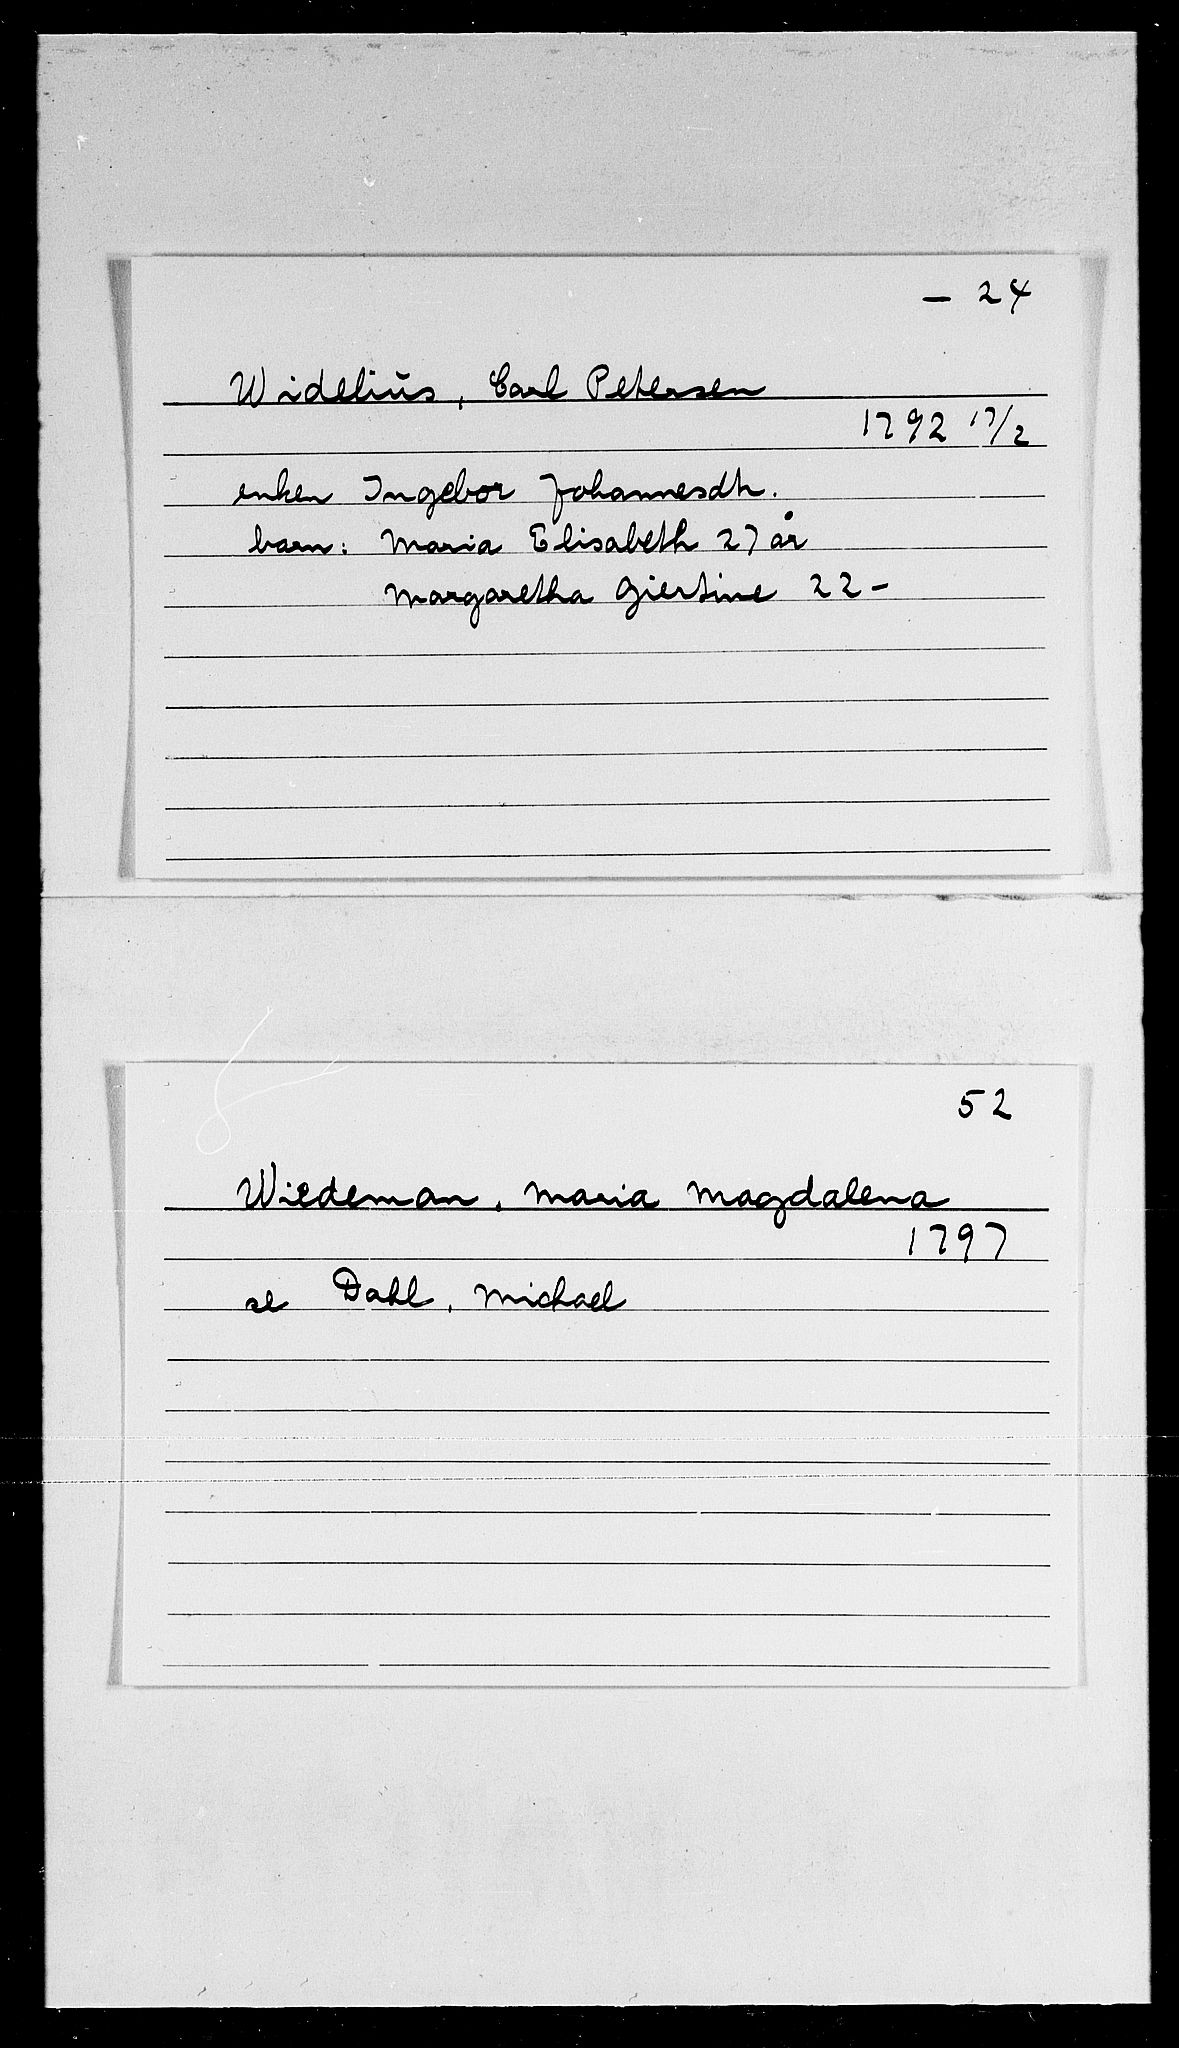 – 24
Widelius, Carl Petersen
1792 17/2
enken Ingebor Johannesdtr.
barn: Maria Elisabeth 27 år
Margaretha Giertine 22 –
52
Wiedeman, Maria Magdalena
1797
se Dahl, Michael